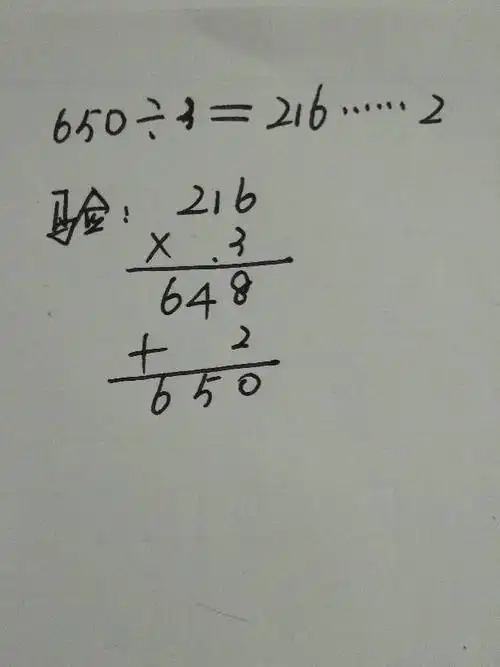 650÷3=216……2
验: 216
× 3
648
+ 2
650